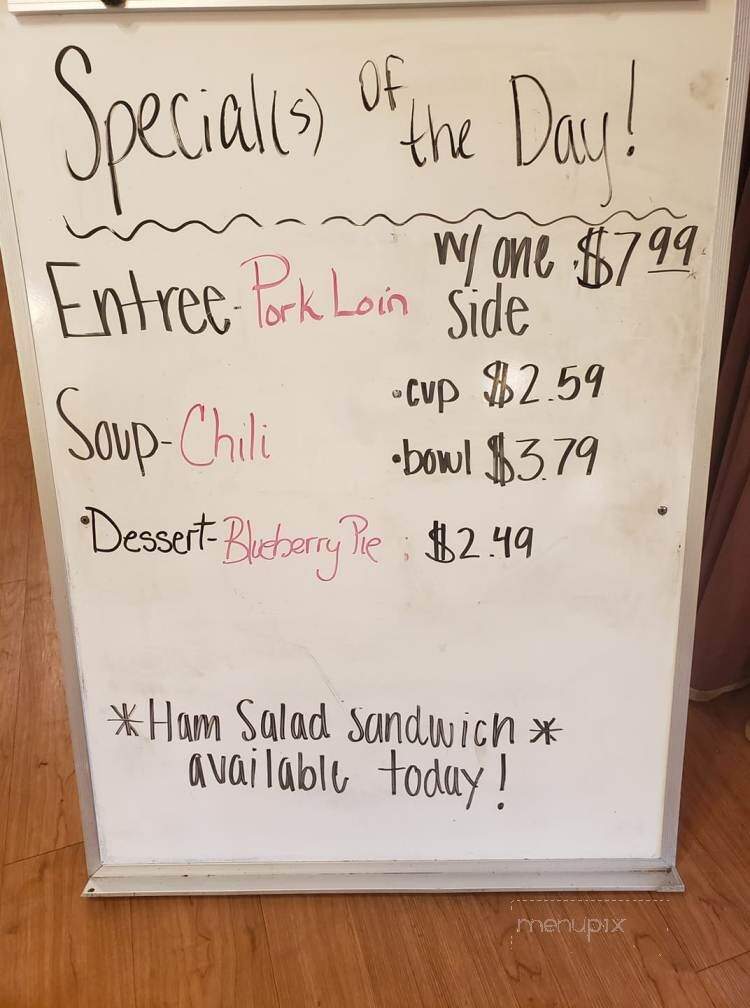 Special(s) of the Day!
Entree- Pork Loin w/ one side $7.99
Soup- Chili
•cup $2.59
•bowl $3.79
Dessert- Blueberry Pie ; $2.49
*Ham Salad Sandwich*
available today!
menupix